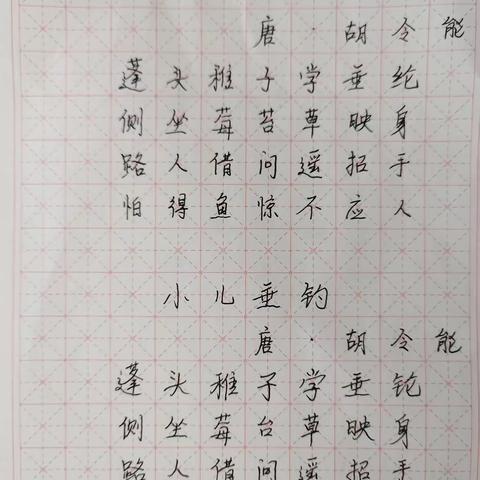 唐·胡令能
蓬头稚子学垂纶
侧坐莓苔草映身
路人借问遥招手
怕得鱼惊不应人
小儿垂钓
唐·胡令能
蓬头稚子学垂
侧坐莓台草映身
路人借问遥招手